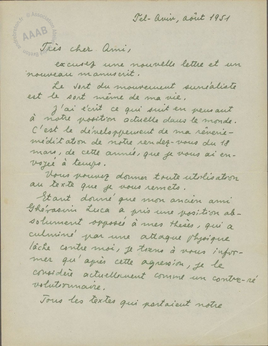 AAAB
Tel-Aviv, août 1951
Très cher Ami,
excusez une nouvelle lettre et un
nouveau manuscrit.
Le sort du mouvement surréaliste
est le sort même de ma vie.
J'ai écrit ce qui suit en pensant
à notre position actuelle dans le monde.
C'est le développement de ma rêverie-
méditation de notre rendez-vous du 18
mars, de cette année, que je vous ai en-
voyée à temps.
Vous pouvez donner toute utilisation
au texte que je vous remets.
Etant donné que mon ancien ami
Ghérasim Luca a pris une position ab-
solument opposée à mes thèses, qui a
culminé par une attaque physique
lâche contre moi, je tiens à vous infor-
mer qu'après cette agression, je le
considère actuellement comme un contre-ré
volutionnaire.
Tous les textes qui portaient notre